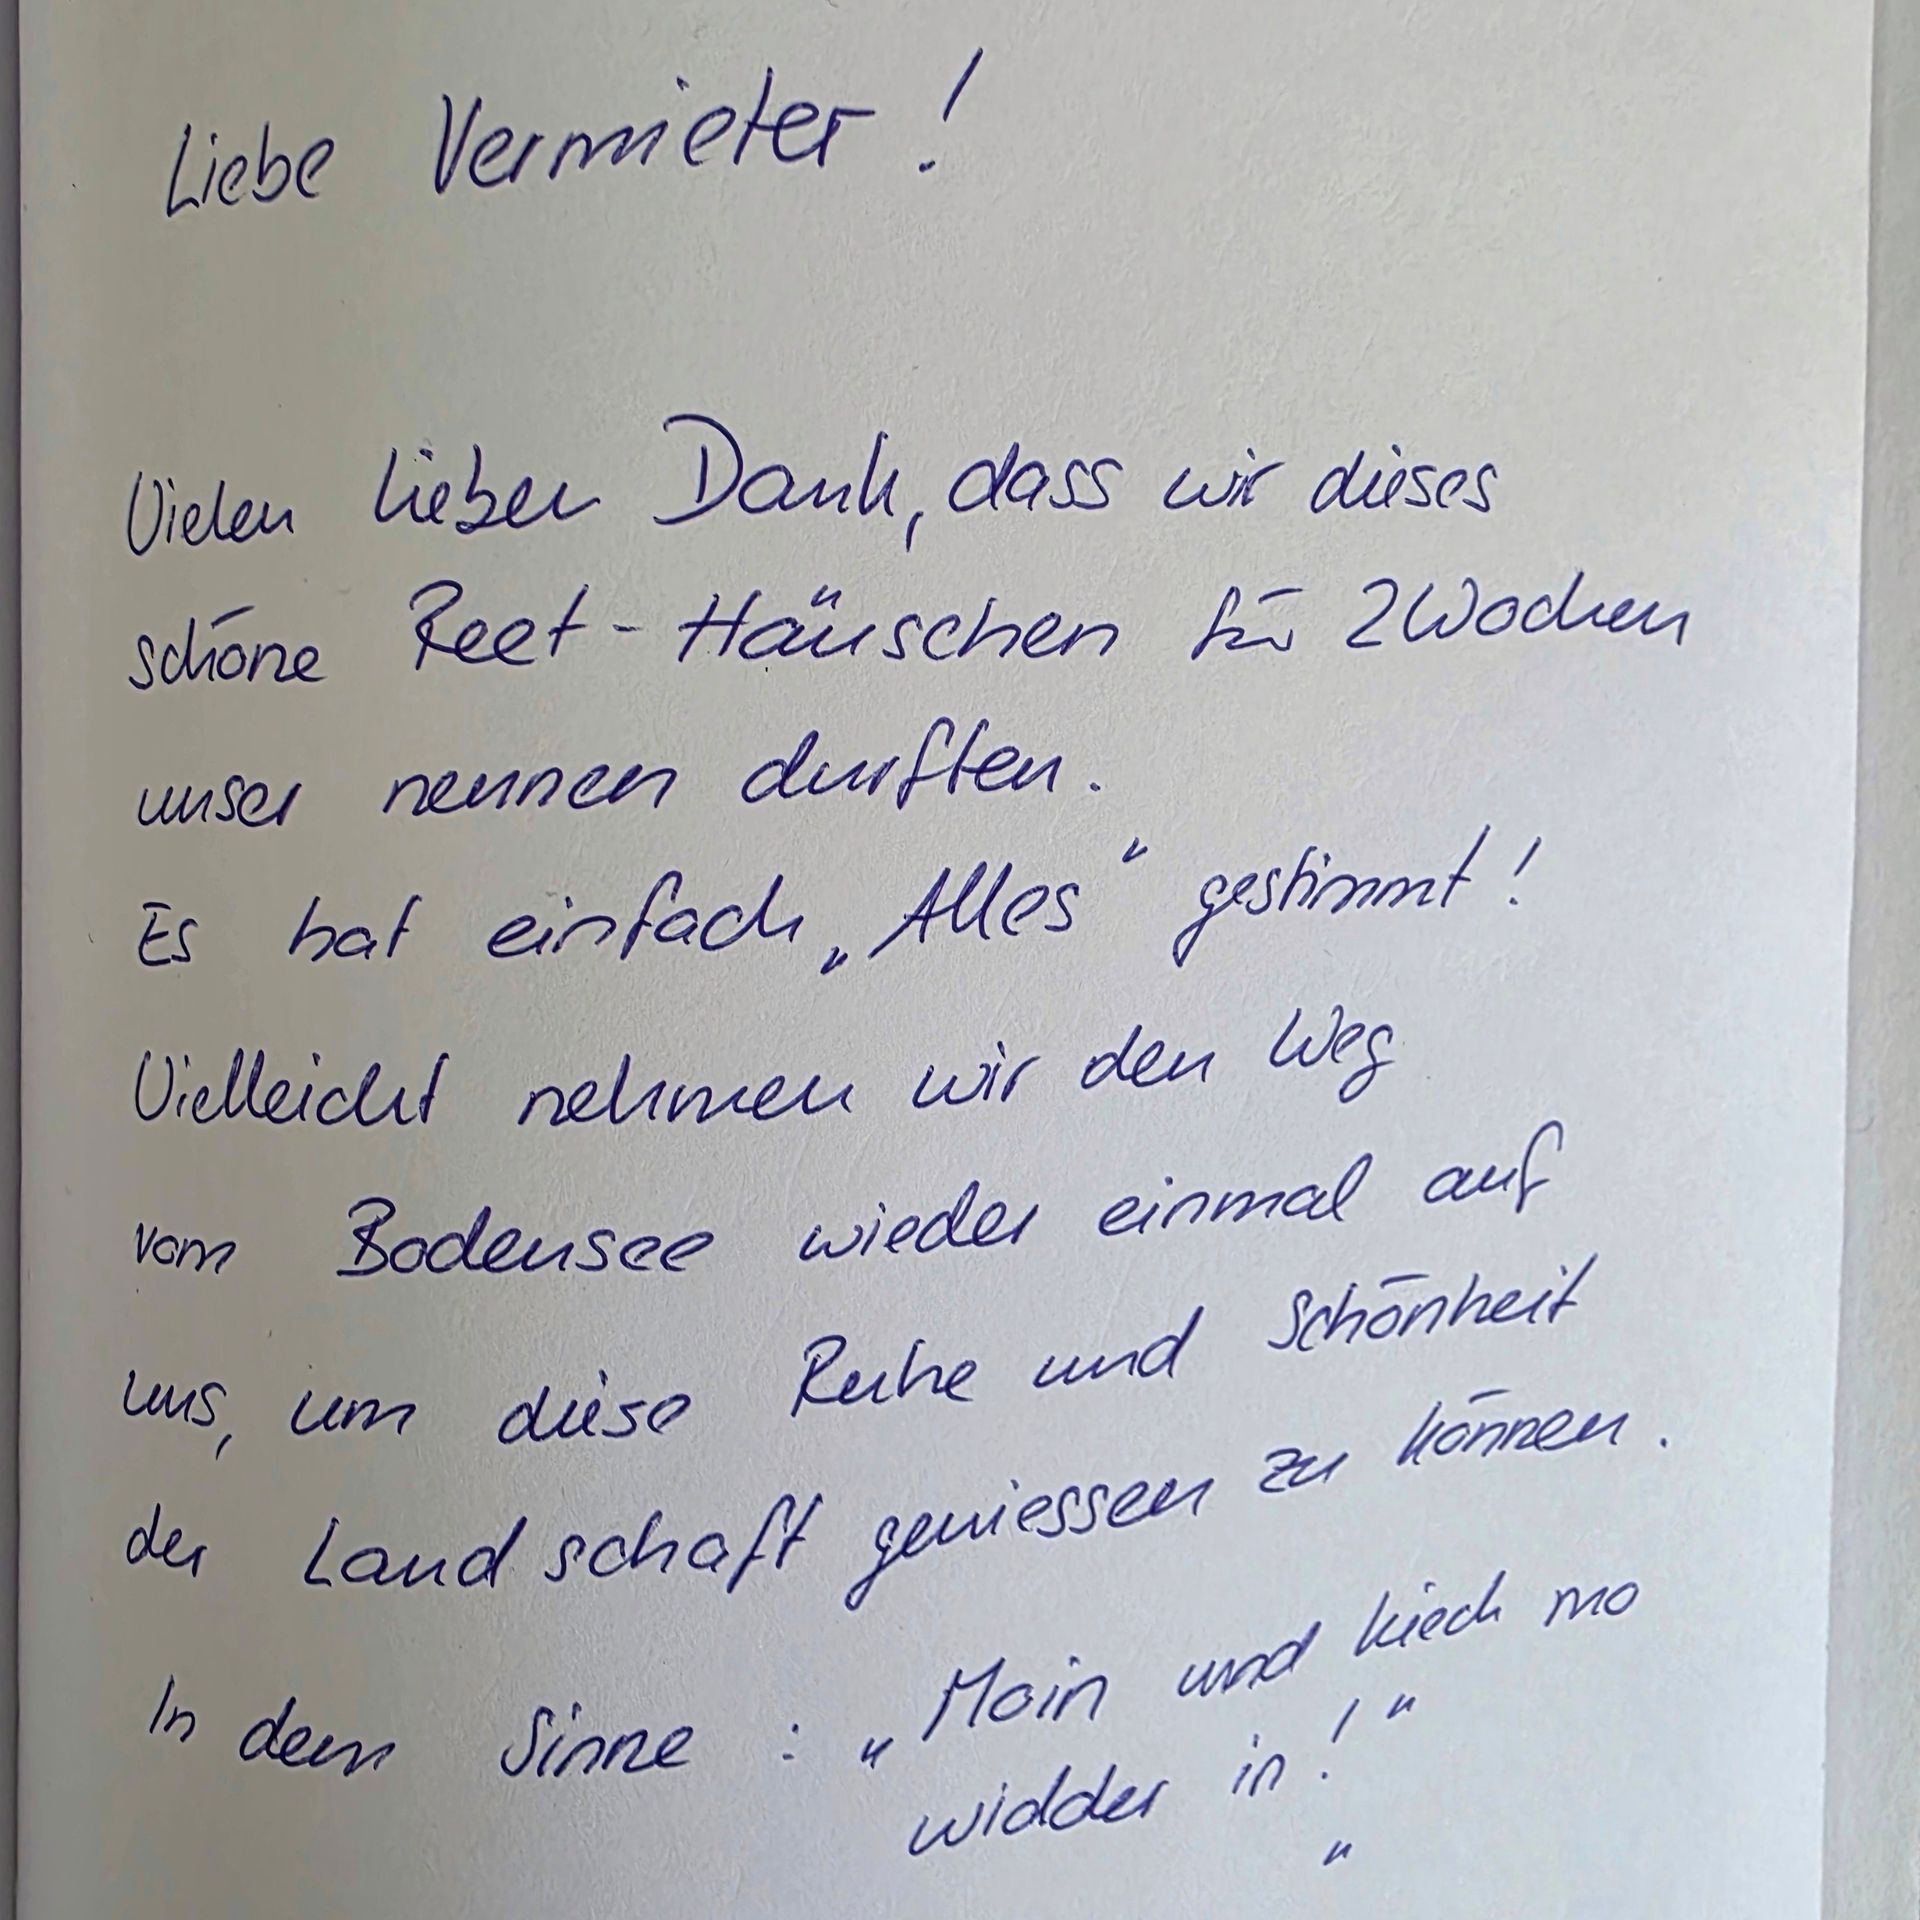 Liebe Vermieter!
Vielen lieben Dank, dass wir dieses
schöne Reet-Häuschen für 2 Wochen
unser nennen durften.
Es hat einfach „Alles" gestimmt!
Vielleicht nehmen wir den Weg
vom Bodensee wieder einmal auf
uns, um diese Ruhe und Schönheit
der Landschaft geniessen zu können.
In dem Sinne: „Moin und kiech mo
widder in!"
"